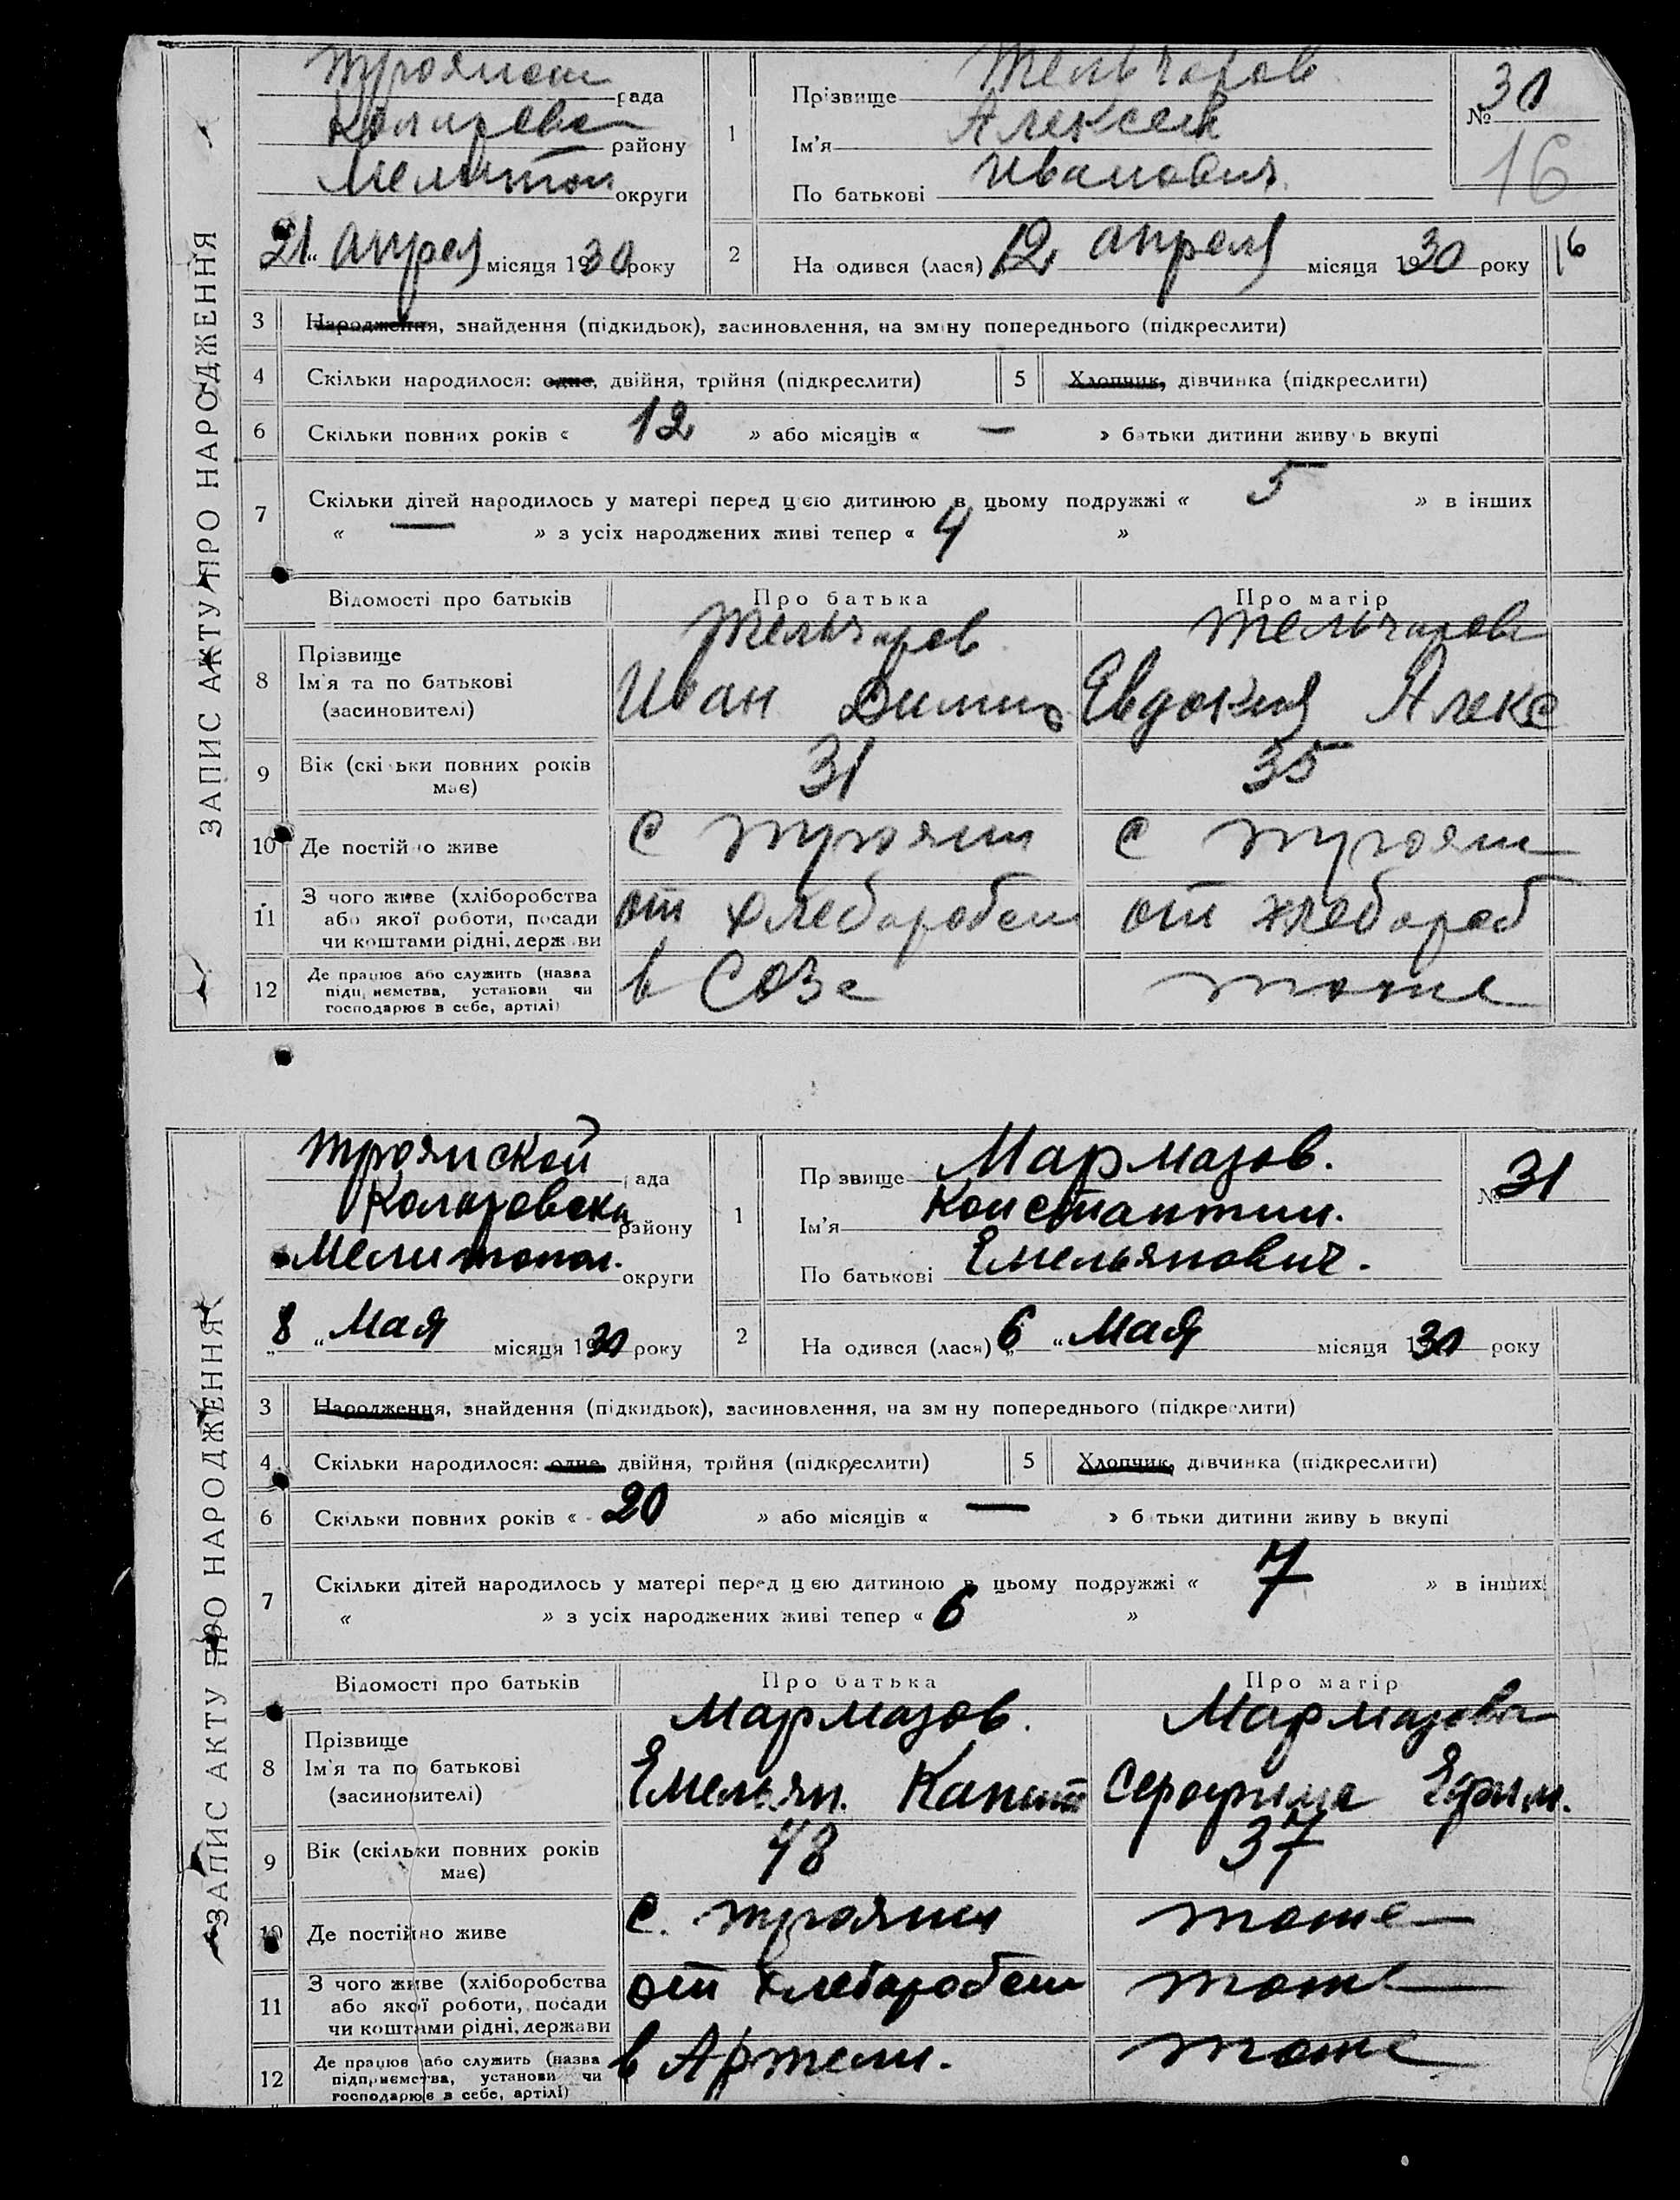 ЗАПИС АКТУ ПРО НАРОДЖЕННЯ
Троянской рада
Коларовс району
Мелитоп округи
21 апреля місяця 1930 року
1
Прізвище Тельчаров
Ім'я Алексей
По батькові Иванович
№ 30
16
2
На одився (лася) 12 апреля місяця 1930 року
16
3 Народження, знайдення (підкидьок), засиновлення, на зміну попереднього (підкреслити)
4 Скільки народилося: одне, двійня, трійня (підкреслити) 5 Хлопчик, дівчинка (підкреслити)
6 Скільки повних років « 12 » або місяців « — » батьки дитини живу ь вкупі
7 Скільки дітей народилось у матері перед цією дитиною в цьому подружжі « 5 » в інших
« — » з усіх народжених живі тепер « 4 »
Відомості про батьків Про батька Про матір
8 Прізвище
Ім'я та по батькові
(засиновителі)
Тельчаров
Иван Дими
Тельчарова
Евдокия Алекс
9 Вік (скі ьки повних років
має)
31 35
10 Де постійно живе с Троян с Троян
11 З чого живе (хліборобства
або якої роботи, посади
чи коштами рідні, держ ви
от хлеборобств от хлебороб
12 Де працює або служить (назва
підп иємства, установи чи
господарює в себе, артілі)
в СОЗе тоже
ЗАПИС АКТУ ПРО НАРОДЖЕННЯ
Троянской рада
Коларовски району
Мелитопол. округи
„8“ Мая місяця 1930 року
1
Пр звище Мармазов.
Ім'я Константин.
По батькові Емельянович.
№ 31
2
На одився (лася) „6“ Мая місяця 1930 року
3 Народження, знайдення (підкидьок), засиновлення, на зм ну попереднього (підкреслити)
4 Скільки народилося: одне, двійня, трійня (підкреслити) 5 Хлопчик, дівчинка (підкреслити)
6 Скільки повних років « 20 » або місяців « — » б тьки дитини живу ь вкупі
7 Скільки дітей народилось у матері перед цією дитиною в цьому подружжі « 7 » в інших
« » з усіх народжених живі тепер « 6 »
Відомості про батьків Про батька Про матір
8 Прізвище
Ім'я та по батькові
(засиновителі)
Мармазов.
Емельян. Капит
Мармазова
Серафима Ефим.
9 Вік (скільки повних років
має)
48 37
10 Де постійно живе с. Трояны тоже
11 З чого живе (хліборобства
або якої роботи, посади
чи коштами рідні, держави
от хлеборобств тоже
12 Де працює або служить (назва
підприємства, установи чи
господарює в себе, артілі)
в Артели. тоже